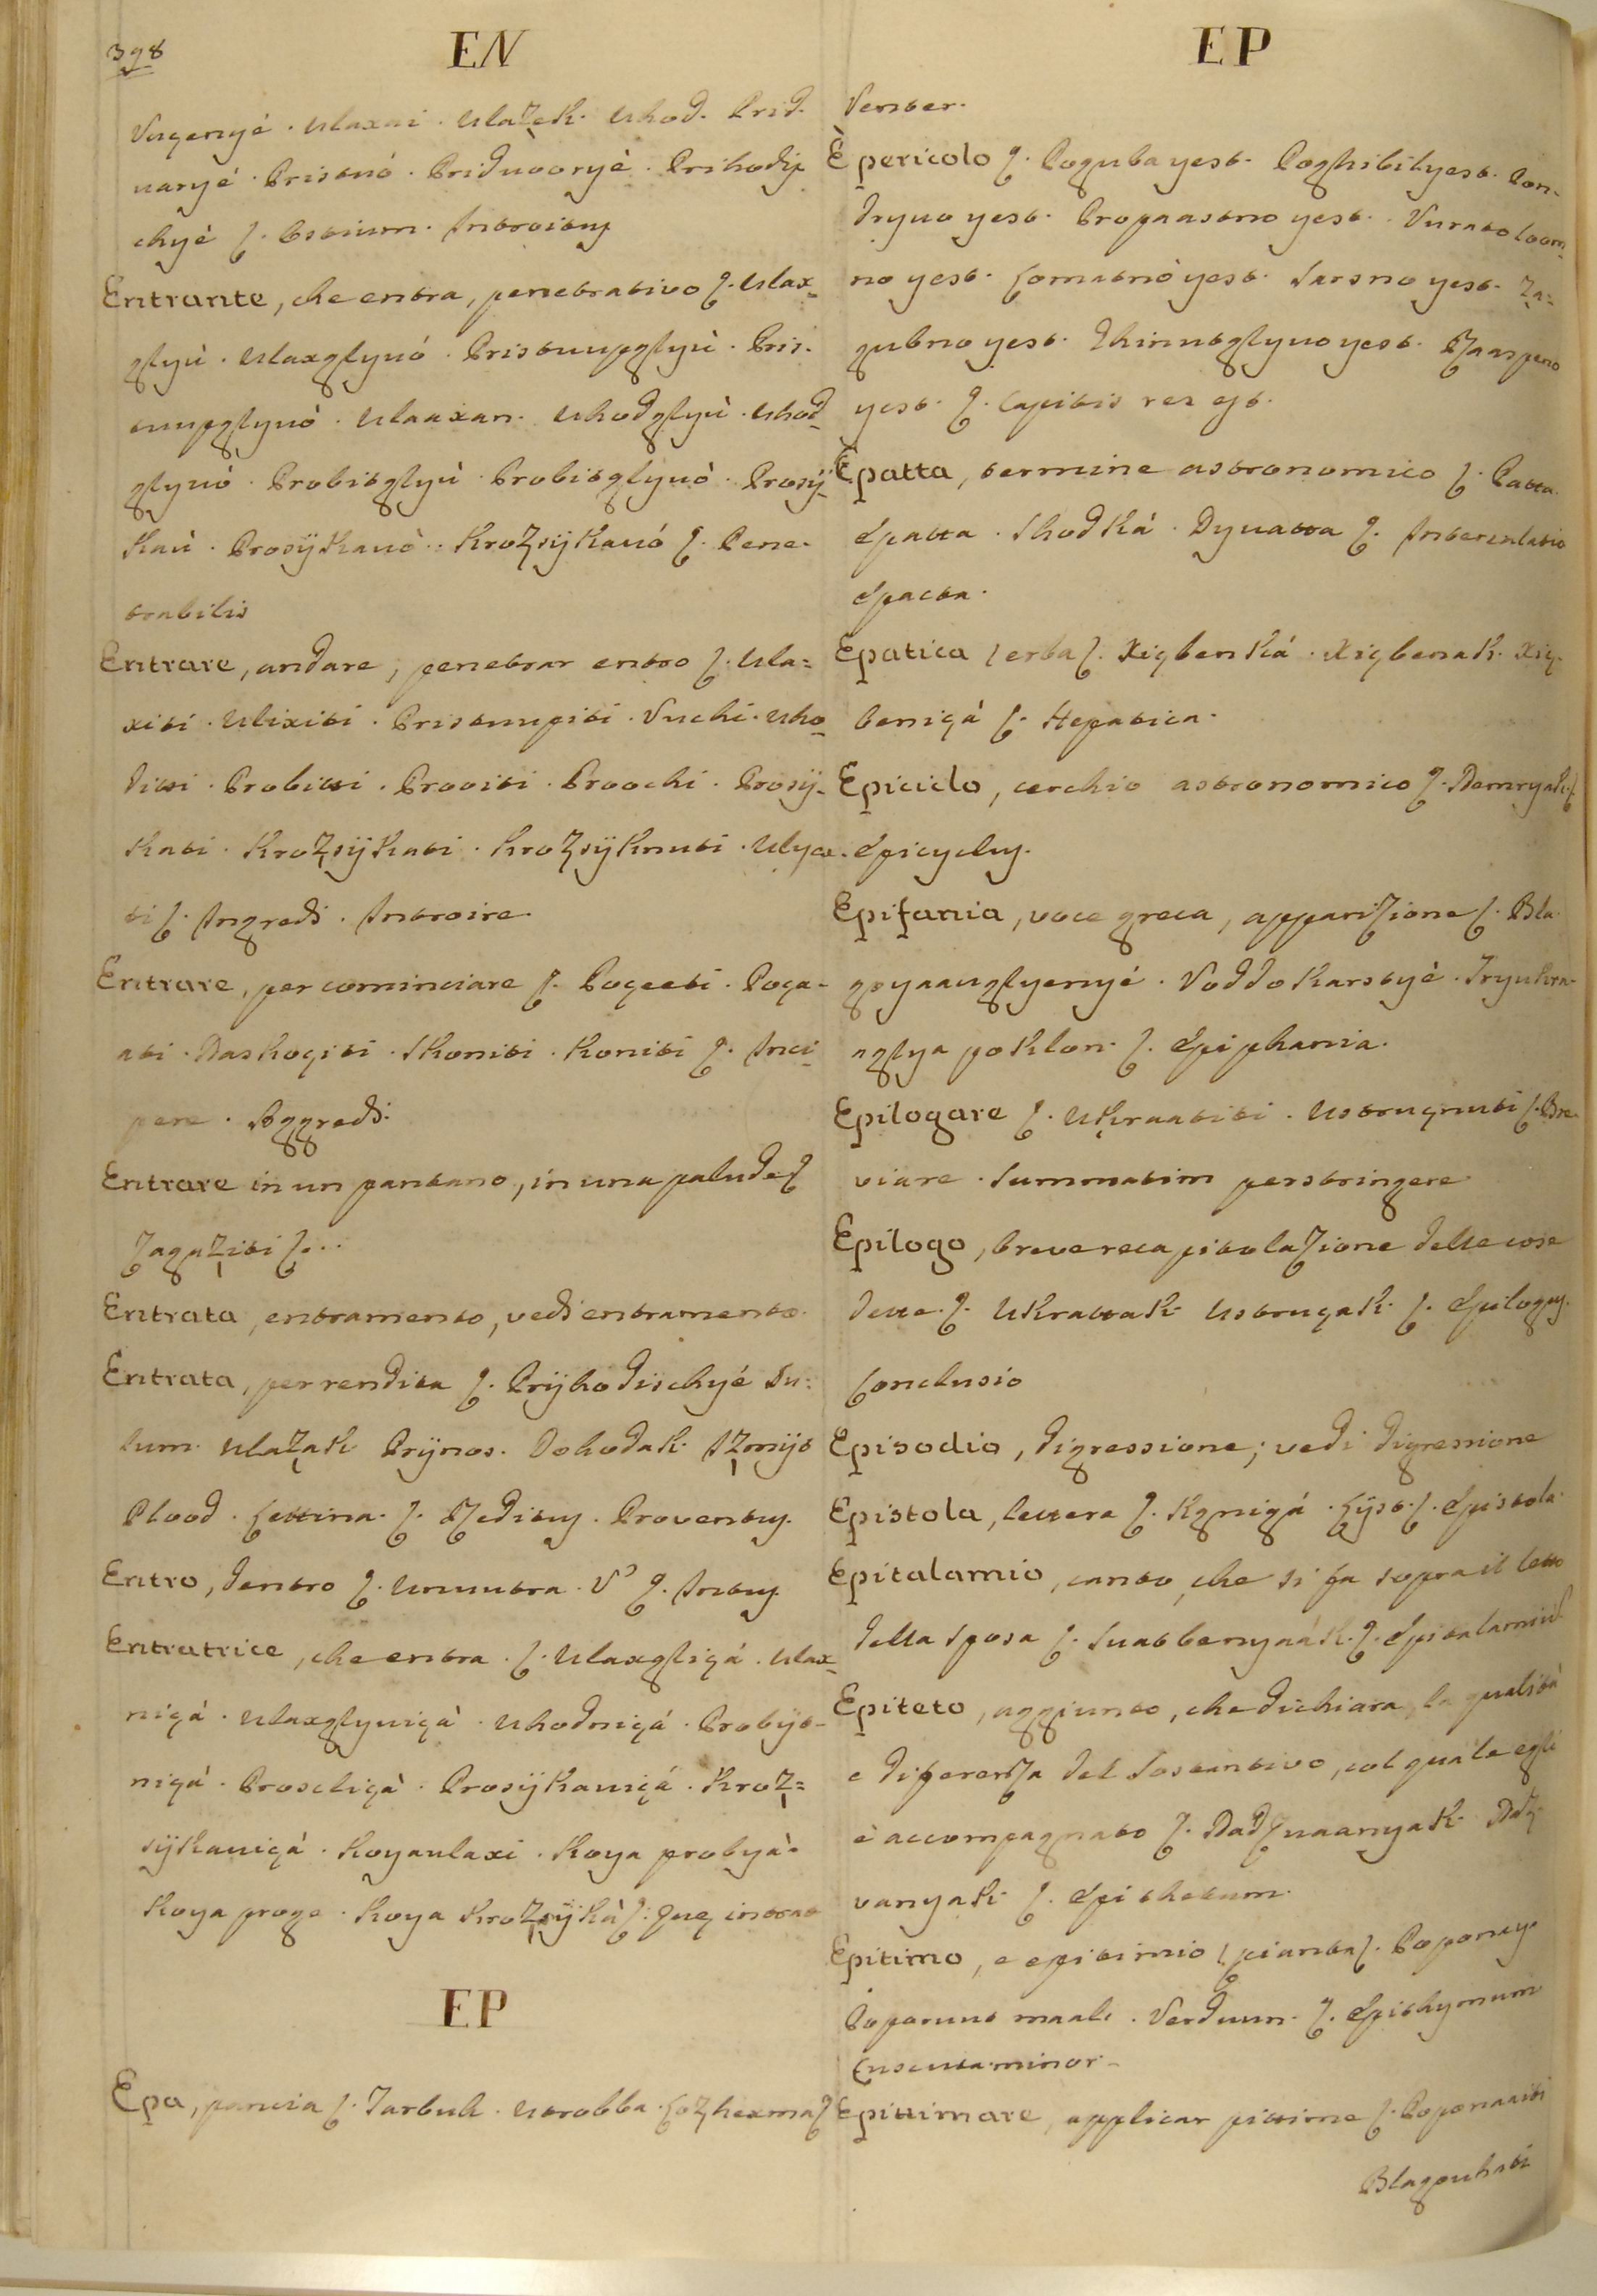 398
EN
Vuqenyé · Ulaxai · Ulaz̧ek· Uhod· Prid·
uaryé · Pristuó · Priduooryé · Prihodij
chyè ſ. Ostium· Introitus
Entrante, che entra, penetrativo ſ. Ulax-
gſyù · Ulaxgſyuó · Pristuupgſyù · Pris-
tuupgſyuò · Ulaaxan· Uhodgſyù · Uhod-
gſyuó · Probitgſyù · Probitgſyuò · Prosÿ-
kaù · Prosÿkauò · Kroz̧sÿkauó ſ. Pene-
trabilis
Entrare, andare, penetrar entro ſ. Ula=
xiti · Ulixiti · Pristuupiti · Vuchi · Uho-
ditti · Probitti · Prooiti · Proochi · Prosÿ-
kati · Kroz̧sÿkati · Kroz̧sÿknuti · Ulyez-
ti ſ. Ingredi · Introire·
Entrare, per cominciare ſ. Poqeeti · Poqa-
ati · Naskoqiti · Skoniti · Koniti ſ. Inci-
pere · Aggredi·
Entrare in un pantano, in una palude ſ
Zagaz̧iti ſ...
Entrata, entramento, vedi entramento·
Entrata, per rendita ſ. Prÿhodischyé Du=
lum· Ulaz̧ak Prÿnos· Dohodak· Iz̧mÿt
Plood · Lettina· ſ. Reditus · Proventus·
Entro, dentro ſ. Unuutra · V' ſ. Intus
Entratrice, che entra · ſ. Ulaxgſiqá · Ulax-
niqà · Ulaxgſyuiqà · Uhodniqá · Probÿt-
niqà · Proscliqà · Prosÿkauiqá · Kroz̧=
sÿkauiqà · Koyaulaxi · Koya probyà·
Koya proge · Koya kroz̧sÿkà ſ. Quę intrat
EP
Epa, pancia ſ. Tarbuh · Utrobba · Loz̧hexma ſ
EP
Venter·
È pericolo ſ. Poguba yest· Pogſhibilyest· Pon-
dryuo yest· Propaastno yest· Vuratoloom-
no yest· Lomatnò yest· Sarsno yest· Z̧a=
gubno yest· Ghinutgſyuo yest· Raaspeno
yest· ſ. Capitis res est·
Epatta, termine astronomico ſ. Patta·
Epatta · Shodká · Dyuatta ſ. Intercalatio
Epacta·
Epatica (erba ſ. Xiqbenká · Xiqbenak· Xiq-
beniqá ſ. Hepatica·
Epiciclo, cerchio astronomico ſ. Namryak· ſ
Epicyclus·
Epifania, voce greca, apparizione ſ. Bla-
goyaaugſyenyé · Voddokarstyè · Tryukra-
agſya poklon· ſ. Epiphania·
Epilogare ſ. Ukraatiti · Ustruqnuti ſ. Bre-
viare · Summatim perstringere
Epilogo, breve recapitolazione delle cose
dette· ſ. Ukrattak Ustruqak· ſ. Epilogus·
Conclusio
Episodio, digressione; vedi digressione
Epistola, lettera ſ. Kgnigá · Lÿst· ſ. Epistola·
Epitalamio, canto, che si fa sopra il letto
della sposa ſ. Suatbenyaák· ſ. Epitalamiũ
Epiteto, aggiunto, che dichiara la qualità
e diferenza del sostantivo, col quale egli
è accompagnato ſ. Nadzuaanyak Naz-
vanyak ſ. Epithetum·
Epitimo, e epitimio (pianta ſ. Poponey·
Poponuut maali · Verduun· ſ. Epithymum
Cuscuta minor·
Epittimare, applicar pittime ſ. Poponaaiti
Blagouhati